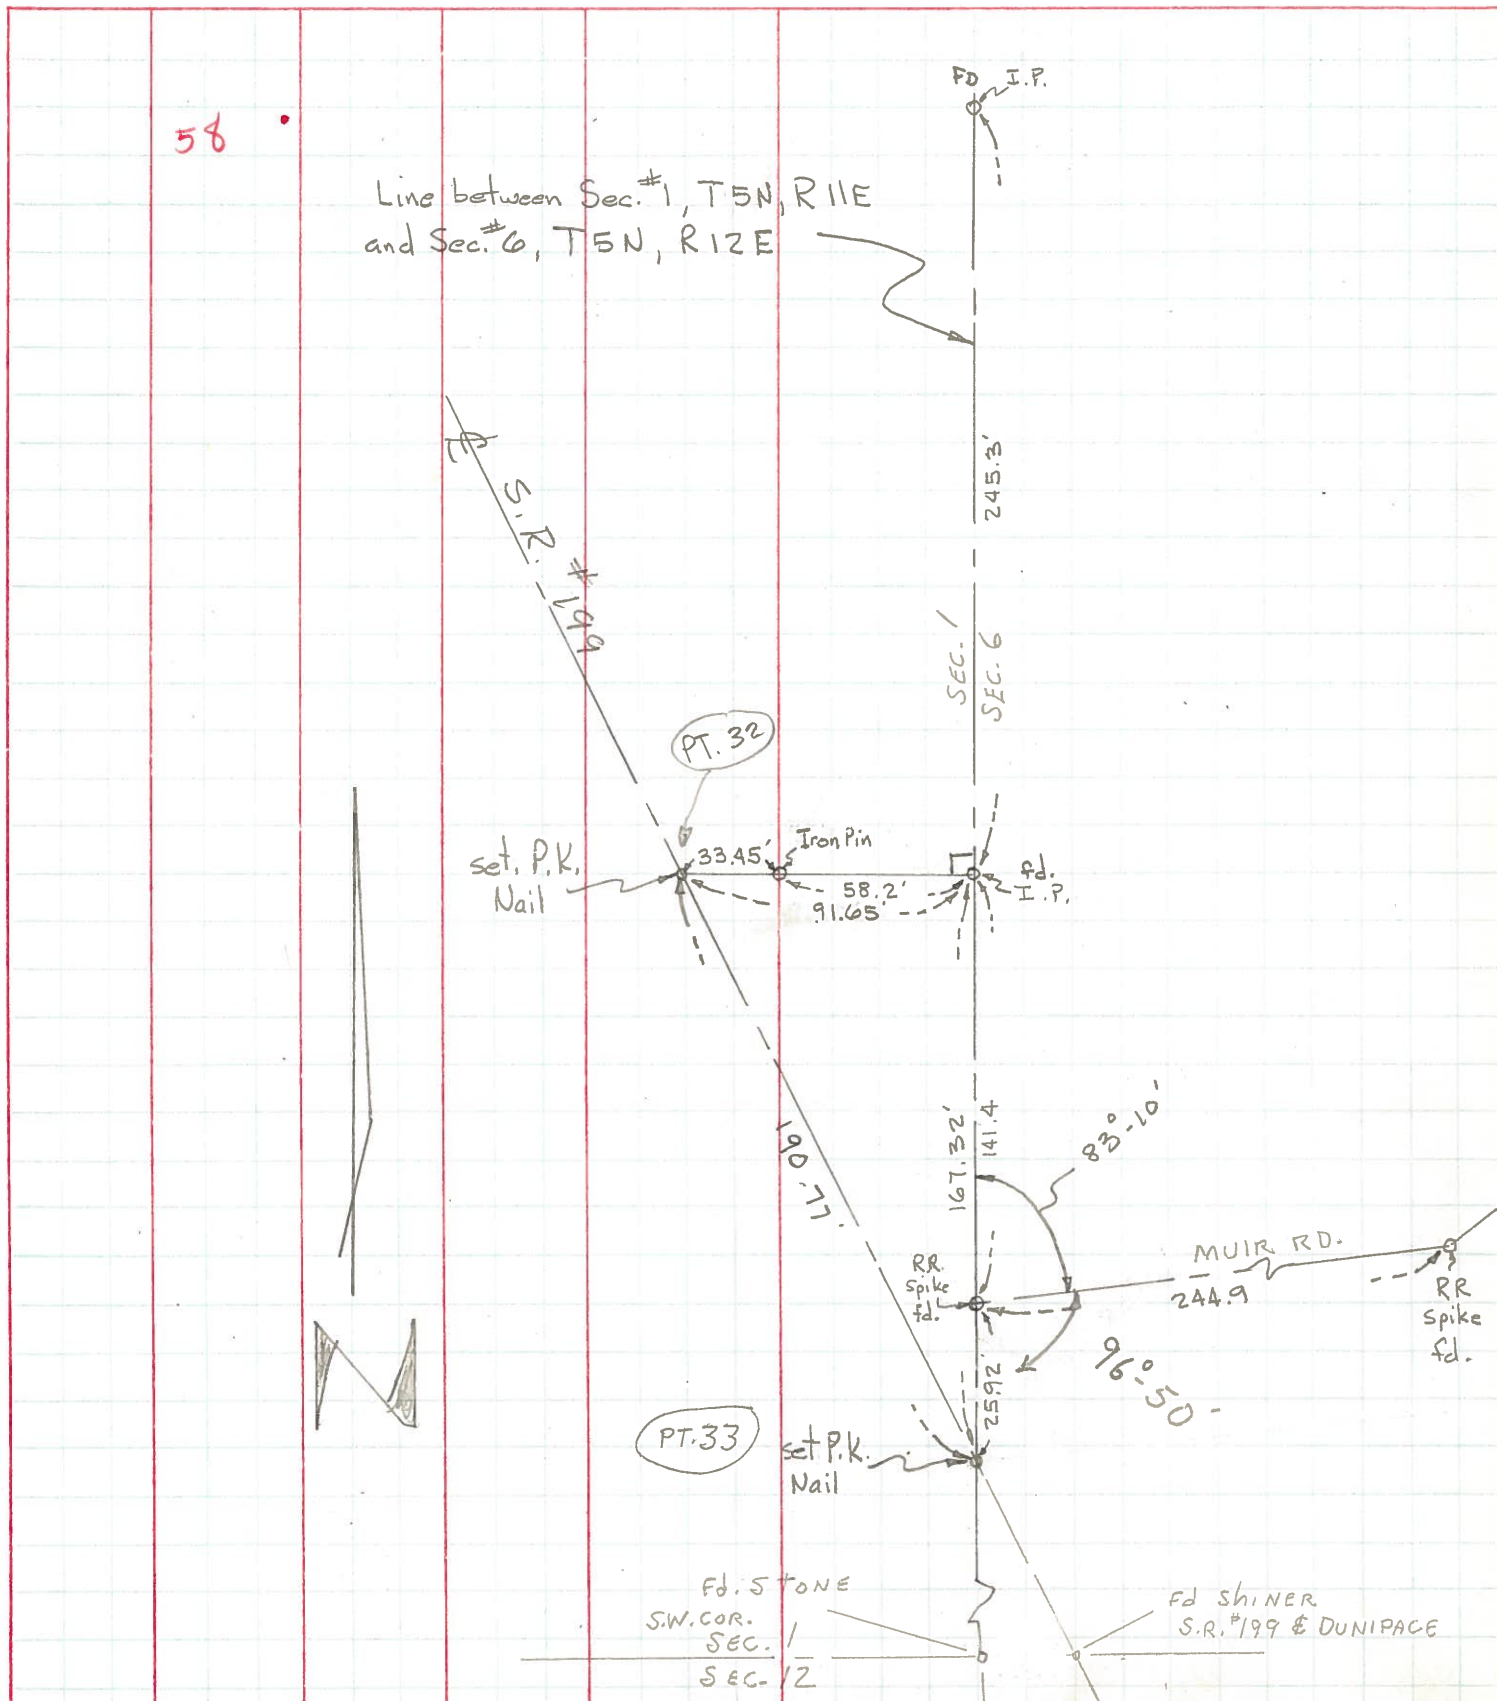 58
FD I.P.
Line between Sec. #1, T5N, R11E
and Sec. #6, T5N, R12E
245.3'
℄
S.R. #199
SEC. 1
SEC. 6
PT. 32
33.45'
Iron Pin
set. P.K.
Nail
fd.
I.P.
58.2'
91.65'
190.77'
167.32'
141.4
83°-10'
MUIR RD.
244.9
RR
Spike
fd.
RR
Spike
fd.
96°-50'
25.92'
PT. 33
set P.K.
Nail
N
Fd. STONE
S.W. COR.
SEC. 1
SEC. 12
Fd ShINER
S.R. #199 & DUNIPACE